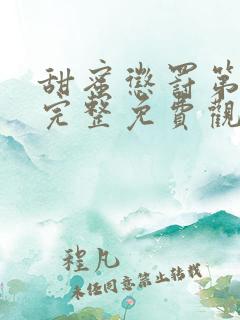 甜蜜懲罰第
完整免費觀
程凡
未经同意禁止转载